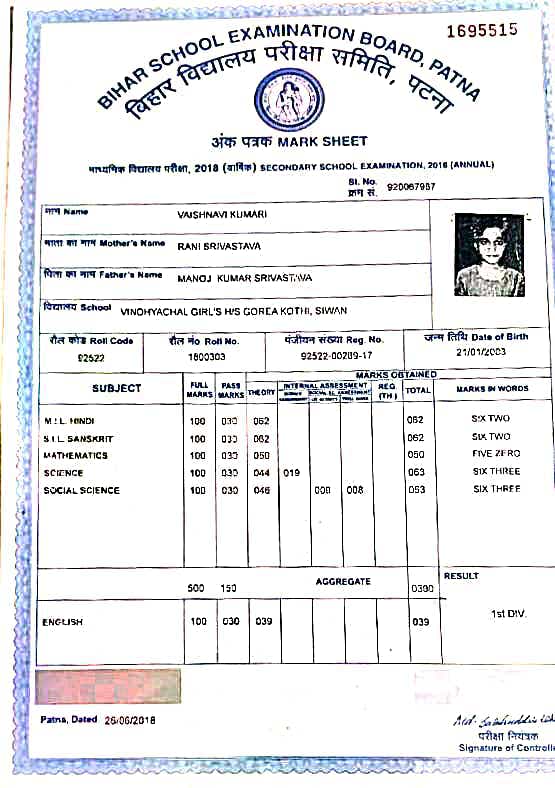 1695515
BIHAR SCHOOL EXAMINATION BOARD, PATNA
बिहार विद्यालय परीक्षा समिति, पटना
अंक पत्रक MARK SHEET
माध्यमिक विद्यालय परीक्षा, 2018 (वार्षिक) SECONDARY SCHOOL EXAMINATION, 2018 (ANNUAL)
Sl. No.
क्रम सं. 920067967
नाम Name VAISHNAVI KUMARI
माता का नाम Mother's Name RANI SRIVASTAVA
पिता का नाम Father's Name MANOJ KUMAR SRIVASTAVA
विद्यालय School VINDHYACHAL GIRL'S H/S GOREA KOTHI, SIWAN
रौल कोड Roll Code रौल नं० Roll No. पंजीयन संख्या Reg. No. जन्म तिथि Date of Birth
92522 1800303 92522-00289-17 21/01/2003
MARKS OBTAINED
SUBJECT FULL MARKS PASS MARKS THEORY INTERNAL ASSESSMENT REG. (TH) TOTAL MARKS IN WORDS
M.I.L. HINDI 100 030 062 062 SIX TWO
S.I.L. SANSKRIT 100 030 062 062 SIX TWO
MATHEMATICS 100 030 050 050 FIVE ZERO
SCIENCE 100 030 044 019 063 SIX THREE
SOCIAL SCIENCE 100 030 046 008 063 SIX THREE
500 150 AGGREGATE 0300 RESULT
ENGLISH 100 030 039 039 1st DIV.
Patna, Dated 26/06/2018
परीक्षा नियंत्रक
Signature of Controlle